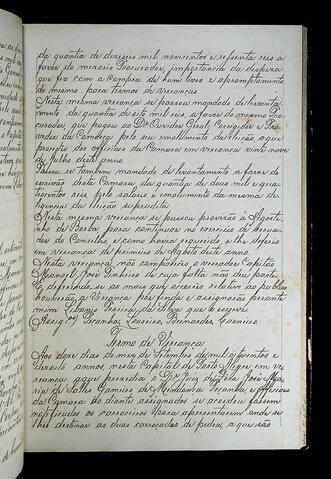 da quantia de dezoito mil novecentos e sessenta reis a
favor do mesmo Procurador, importancia da despeza
que fez com a compra de hum livro e apromptamento
do mesmo para termos de Vereanças
Nesta mesma vereança se passou mandado de levanta-
mento da quantia de seis mil reis, a favor do mesmo Pro-
curador, que pagou ao Dr. Ouvidor Geral, Corregidor e Pro-
vedor da Comarca pelo seu emolumento da eleição a que
procedeo dos officiaes da Camara em vereança vinte nove
de Julho deste anno.
Passou-se tambem mandado de levantamento a favor do
escrivão desta Camara da quantia de dous mil e qua-
trocentos reis, pelo salario e emolumento da mesma de-
ligencia da eleição supradita.
Nesta mesma vereança se passou provizão a Agosti-
nho de Borba para continuar no exercicio de
do Conselho, e como havia requerido, e lhe deferio
em vereança de primeiro de Agosto deste anno.
Nesta Vereança, não compareceo, o vereador Capitão
Manoel José Pinheiro de cuja falta não deu parte.
E, differindo-se ao mais que occorrêo relativo ao publico
houverão, a Vereança por finda e assignarão perante
mim Libanio Pereira da Silva que o escrevi
Assig.os Loureiro, Bernardes Carneiro
Termo de Vereança
Aos doze dias do mez de Setembro de mil oitocentos e
dezoito annos, nesta Capital de Porto Alegre em ve-
reança a que presidio o Dr. Juiz de Fora José Ma-
ria de Salles Gameiro de Mendonça Peçanha, e officiaes
da Camara ao diante assignados se acordou fossem
notificados os carreteiros para apresentarem onde se
lhes destinar as duas carretadas de pedra, a que são